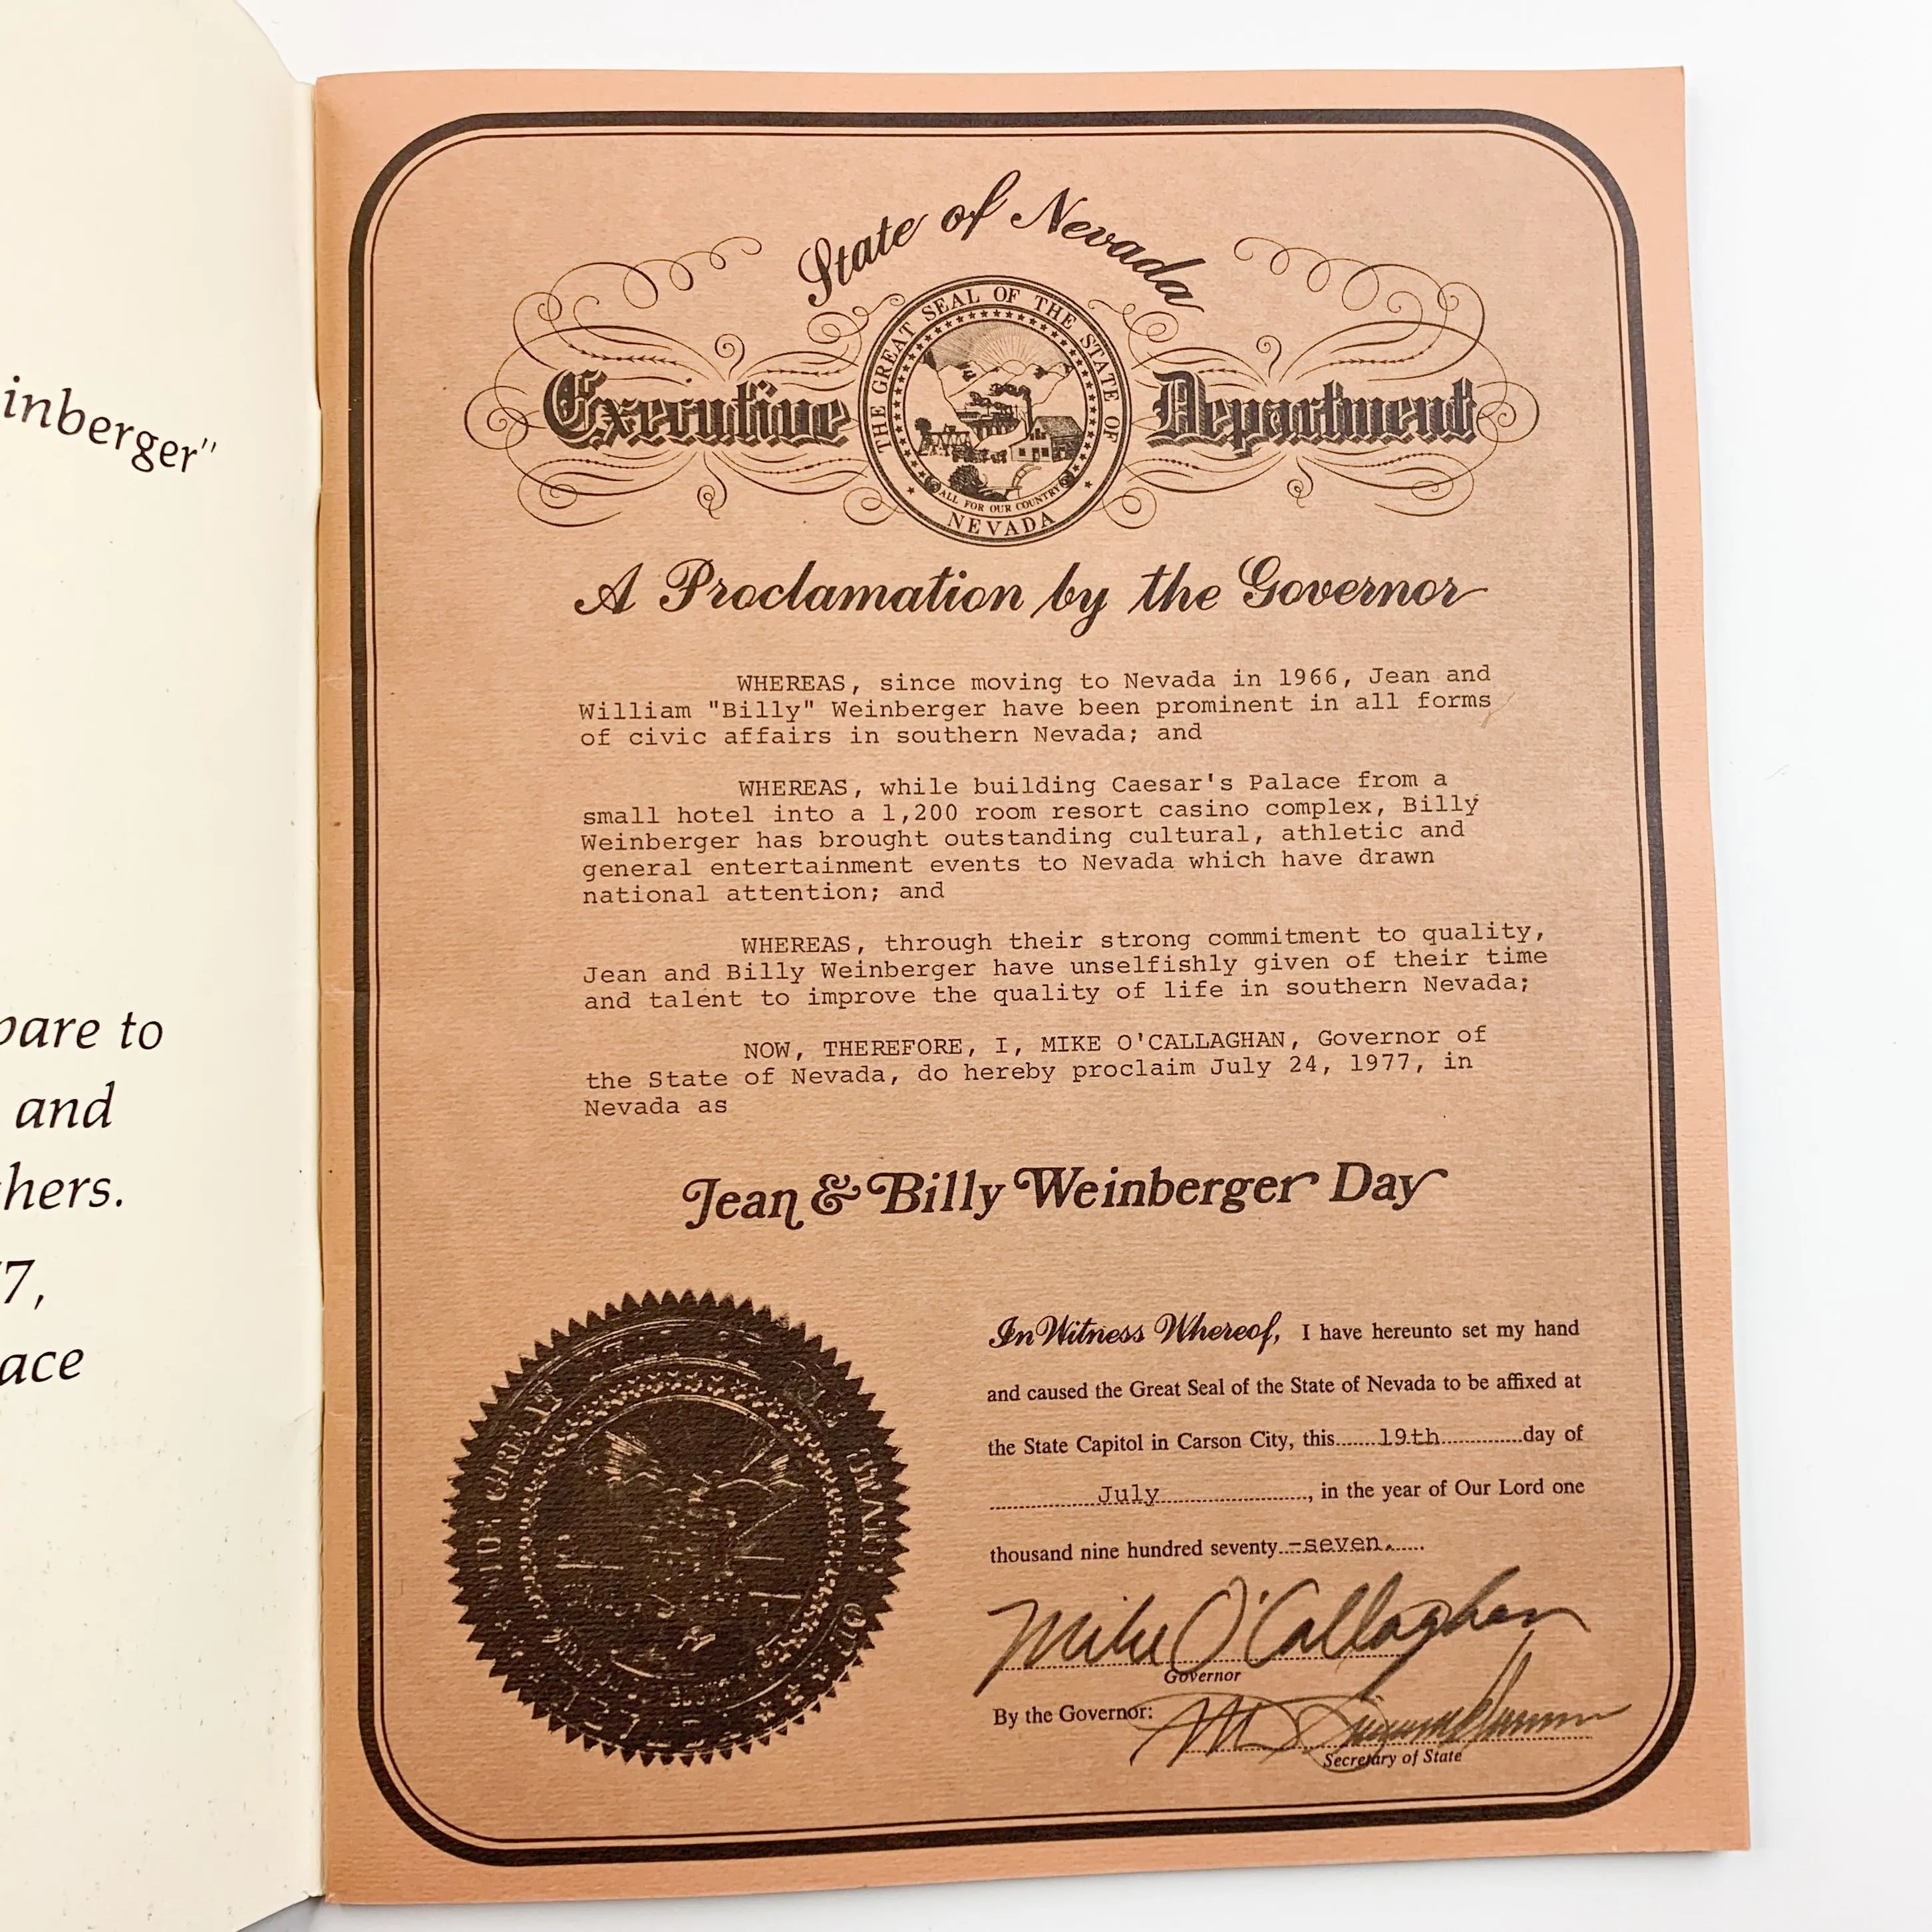 inberger"
pare to
and
hers.
7,
ace
State of Nevada
Executive Department
THE GREAT SEAL OF THE STATE OF
NEVADA
ALL FOR OUR COUNTRY
A Proclamation by the Governor
WHEREAS, since moving to Nevada in 1966, Jean and
William "Billy" Weinberger have been prominent in all forms
of civic affairs in southern Nevada; and
WHEREAS, while building Caesar's Palace from a
small hotel into a 1,200 room resort casino complex, Billy
Weinberger has brought outstanding cultural, athletic and
general entertainment events to Nevada which have drawn
national attention; and
WHEREAS, through their strong commitment to quality,
Jean and Billy Weinberger have unselfishly given of their time
and talent to improve the quality of life in southern Nevada;
NOW, THEREFORE, I, MIKE O'CALLAGHAN, Governor of
the State of Nevada, do hereby proclaim July 24, 1977, in
Nevada as
Jean & Billy Weinberger Day
In Witness Whereof, I have hereunto set my hand
and caused the Great Seal of the State of Nevada to be affixed at
the State Capitol in Carson City, this 19th day of
July, in the year of Our Lord one
thousand nine hundred seventy-seven.
Mike O'Callaghan
Governor
By the Governor:
Secretary of State